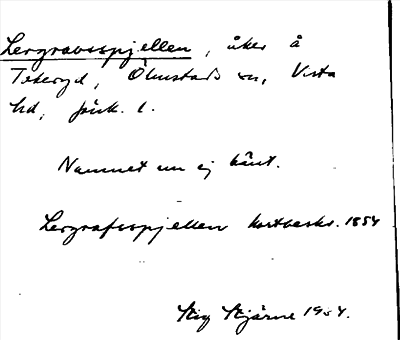 Lergravsspjellen, åker å
Tekeryd, Ölmstads sn, Vista
hd, Jönk. l.
Namnet nu ej känt.
Lergrafsspjellen kartbeskr. 1854
Stig Stjärne 1954.